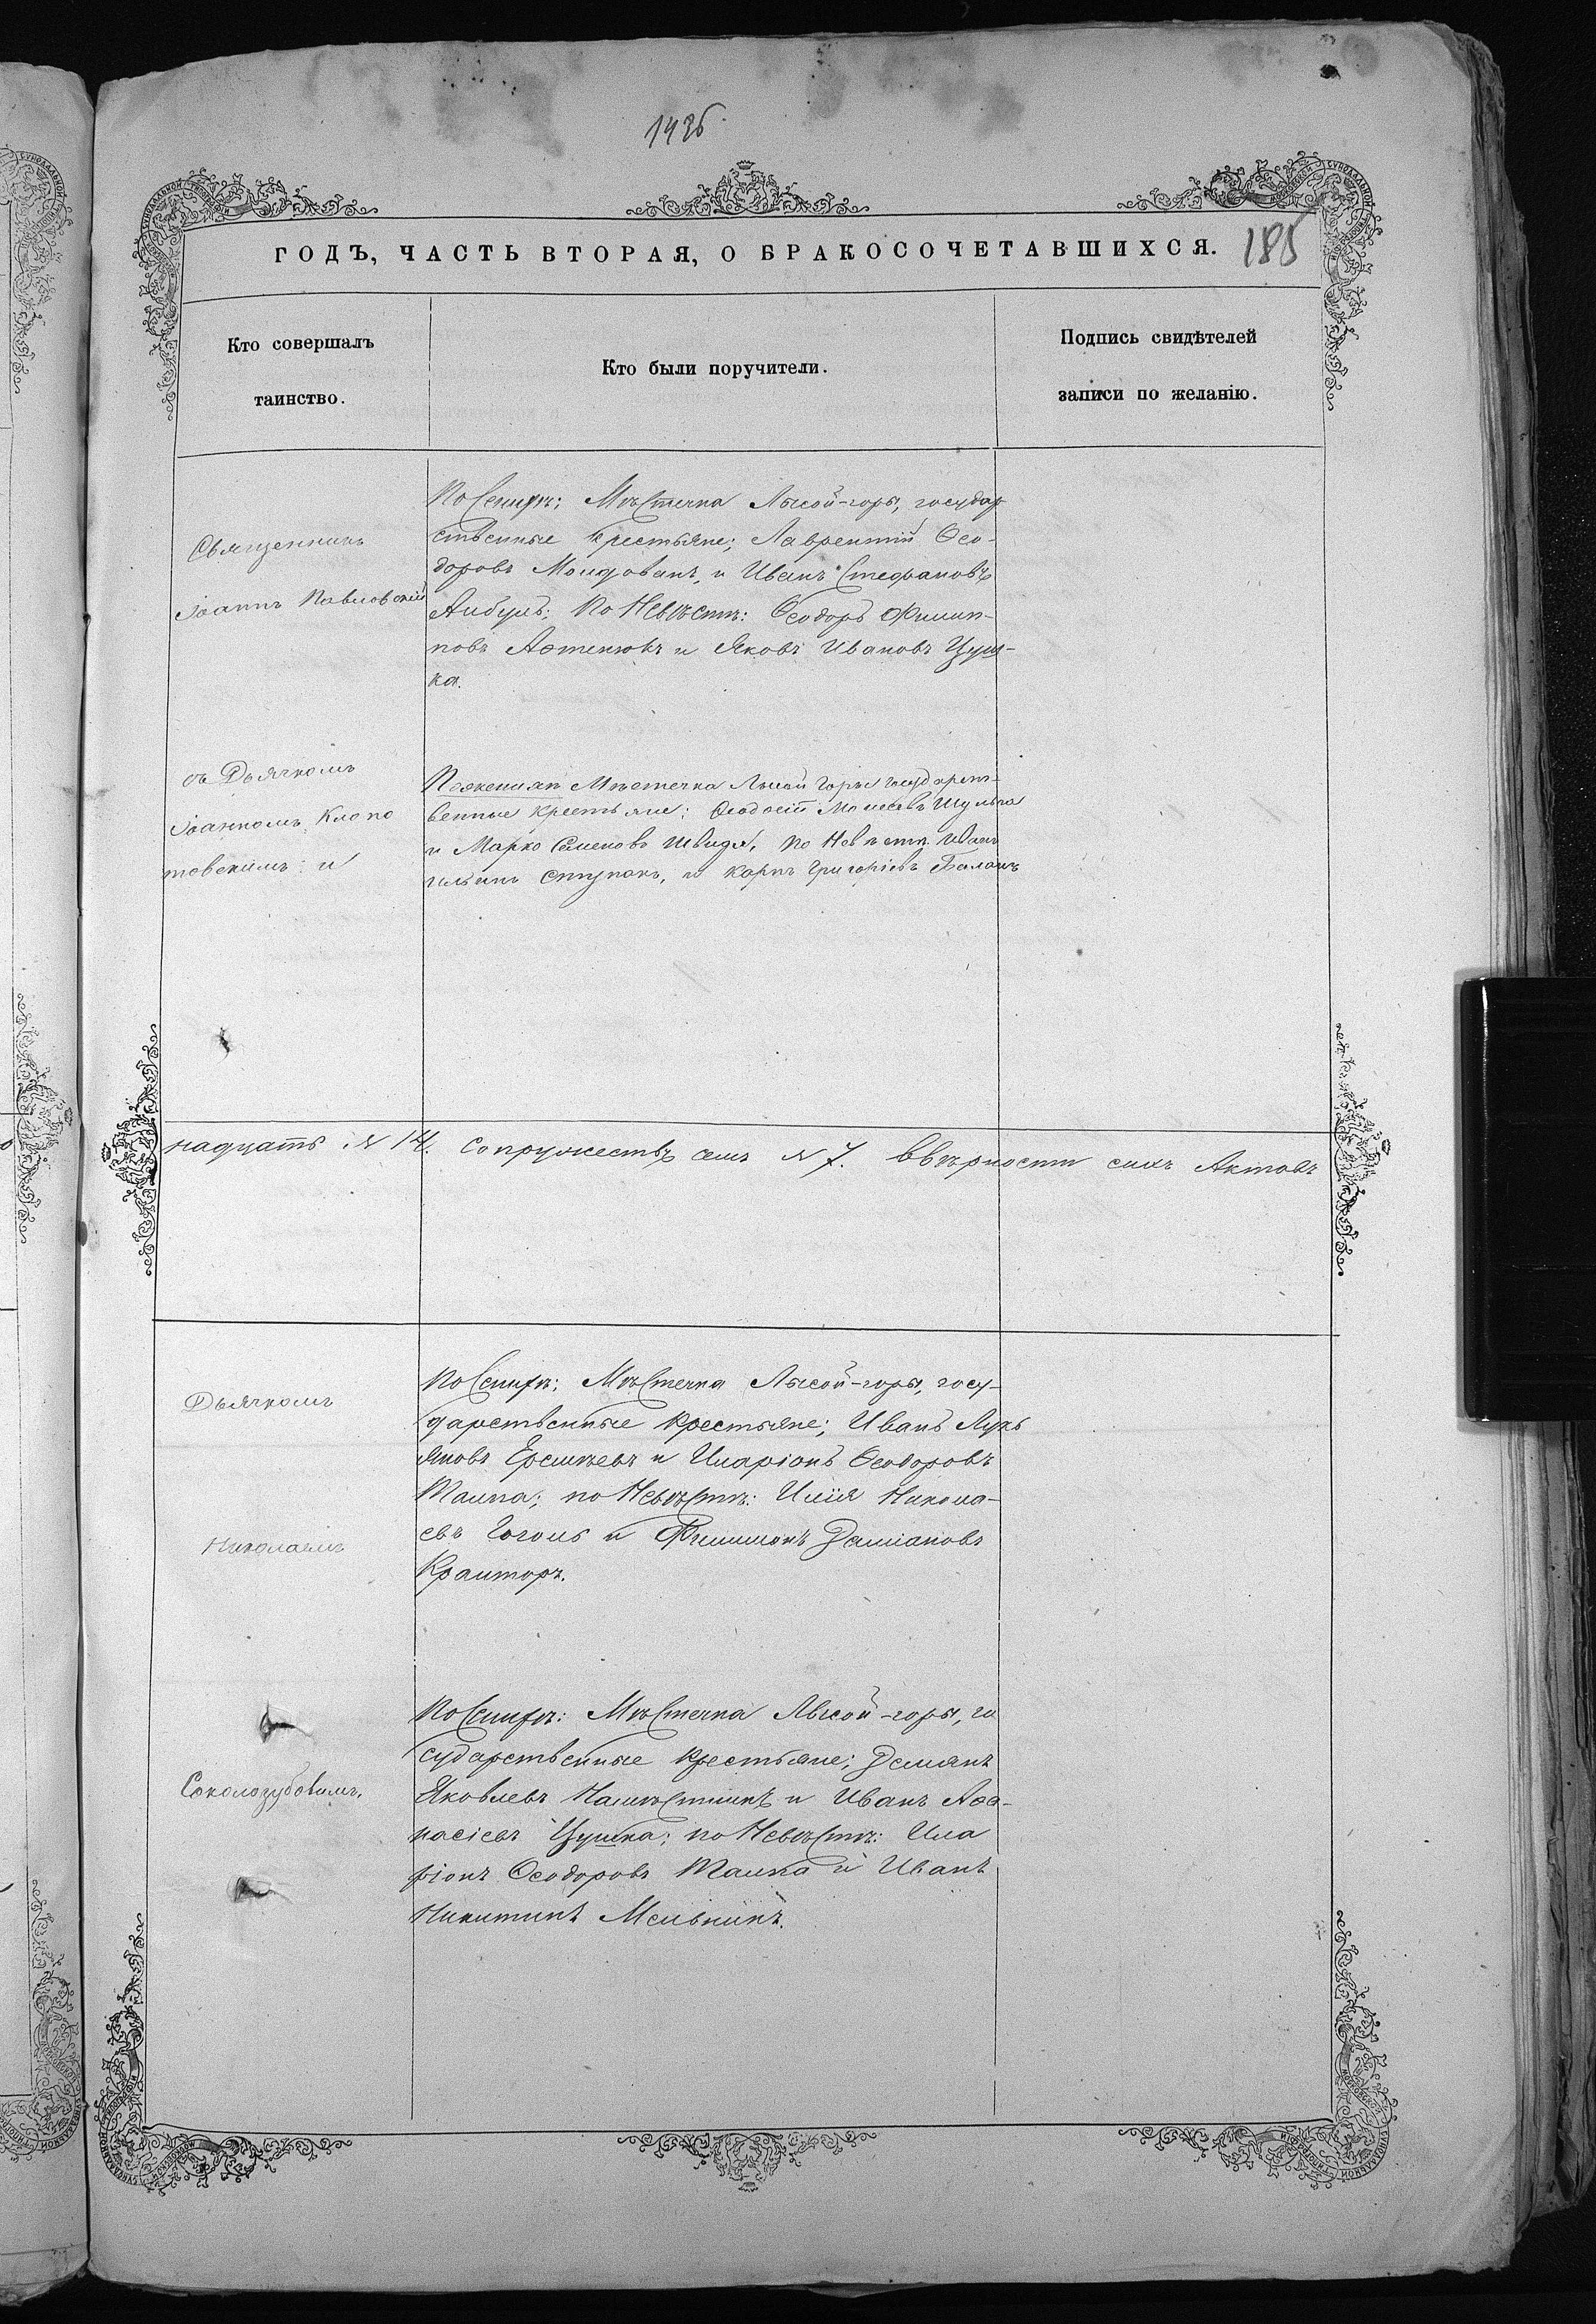 1436
ГОДЪ, ЧАСТЬ ВТОРАЯ, О БРАКОСОЧЕТАВШИХСЯ.
185
Кто совершалъ
таинство.
Кто были поручители.
Подпись свидѣтелей
записи по желанію.
Священникъ
Іоаннъ Павловскій
По Женихѣ: Мѣстечка Лысой-горы, государ
ственные крестьяне; Лаврентій Ѳео-
доровъ Молдованъ, и Иванъ Стефановъ
По Невѣстѣ: Ѳеодоръ Филип-
повъ и Яковъ Ивановъ Цуш-
ка.
съ Дьячкомъ
Іоанномъ Клопо
товскимъ и
По женихѣ Мѣстечка Лысой Горы государст-
венные крестьяне: Ѳеодосій Моисеевъ Шульга
и Марко Семеновъ Швидя, по Невѣстѣ Иванъ
Ильинъ Ступакъ, и Карпъ Григорьевъ Баланъ
надцать N 14. Сопружествъ семь N 7. Ввѣрности сихъ Актовъ
Дьячкомъ
Николаемъ
Соколозубовимъ.
По Женихѣ: Мѣстечка Лысой-горы, госу-
дарственные крестьяне; Иванъ Лукъ
яновъ Еремѣевъ и Иларіонъ Ѳеодоровъ
Малка; по Невѣстѣ: Илія Никола-
евъ Гоголь и Филимонъ Даміановъ
Крамторъ.
По Женихѣ: Мѣстечка Лысой-горы, го
сударственные крестьяне; Демянъ
Яковлевъ Намѣстникъ и Иванъ Аѳа-
насіевъ Цушка; по Невѣстѣ: Ила
ріонъ Ѳеодоровъ Малка и Иванъ
Никитинъ Мельникъ.